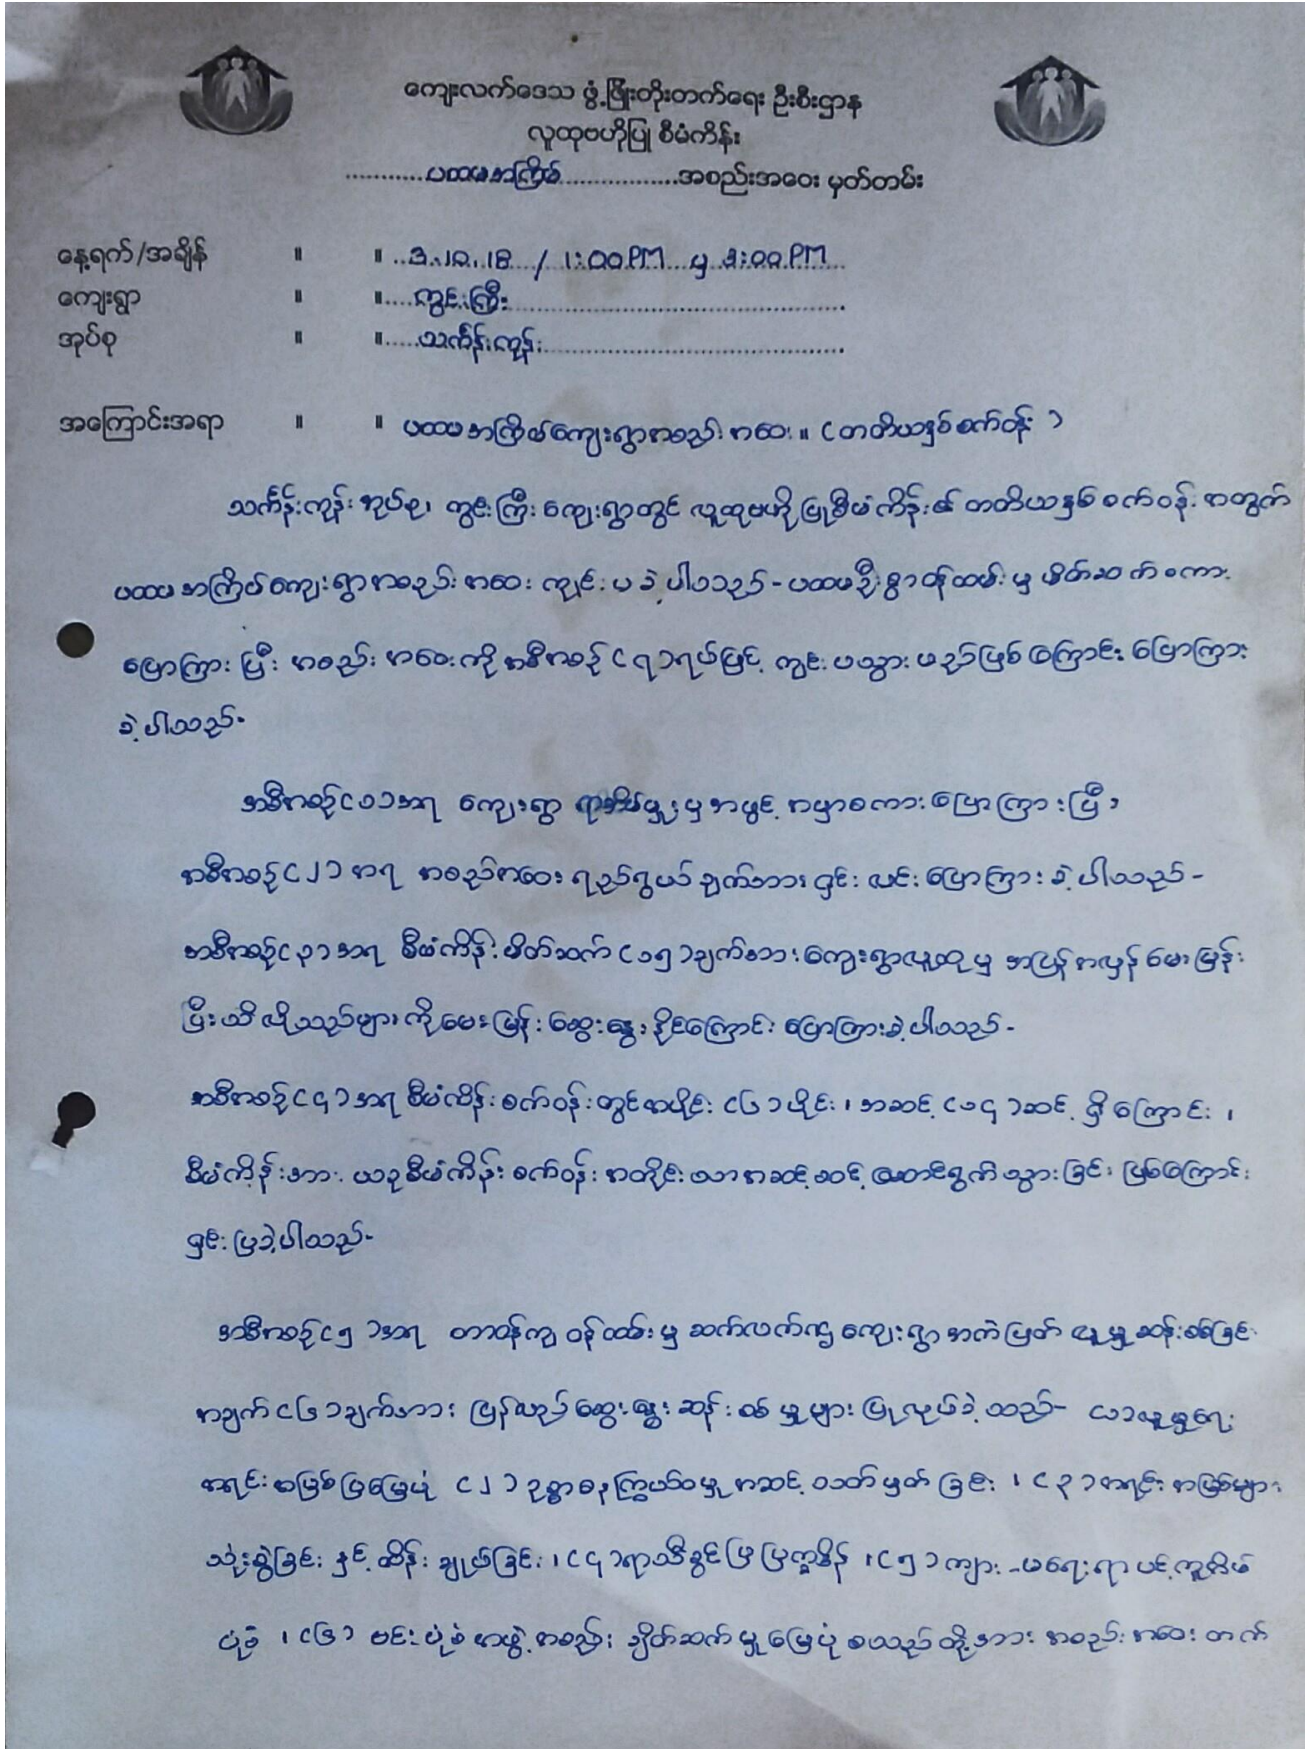 ကျေးလက်ဒေသ ဖွံ့ဖြိုးတိုးတက်ရေး ဦးစီးဌာန
လူထုဗဟိုပြု စီမံကိန်း
............ပထမအကြိမ်..................အစည်းအဝေး မှတ်တမ်း
နေ့ရက်/အချိန် ။ ။ ..3.10.18 / 1:00 PM မှ 3:00 PM
ကျေးရွာ ။ ။....ကွင်းကြီး
အုပ်စု ။ ။.....သင်္ကန်းကုန်း
အကြောင်းအရာ ။ ။ ပထမအကြိမ်ကျေးရွာအစည်းအဝေး။ (တတိယနှစ်စက်ဝန်း)
သင်္ကန်းကုန်းအုပ်စု၊ ကွင်းကြီးကျေးရွာတွင် လူထုဗဟိုပြုစီမံကိန်း၏ တတိယနှစ်စက်ဝန်းအတွက်
ပထမအကြိမ်ကျေးရွာအစည်းအဝေး ကျင်းပခဲ့ပါသည်- ပထမဦးစွာ ဝန်ထမ်းမှ မိတ်ဆက်စကား
ပြောကြားပြီး အစည်းအဝေးကို အစီအစဉ် (၇) ရပ်ဖြင့် ကျင်းပသွားမည်ဖြစ်ကြောင်း ပြောကြား
ခဲ့ပါသည်-
အစီအစဉ် (၁) အရ ကျေးရွာ ရာအိမ်မှူးမှ အဖွင့်အမှာစကား ပြောကြားပြီး၊
အစီအစဉ် (၂) အရ အစည်အဝေး ရည်ရွယ်ချက်အား ရှင်းလင်း ပြောကြားခဲ့ပါသည်-
အစီအစဉ် (၃) အရ စီမံကိန်းမိတ်ဆက် (၁၅) ချက်အား ကျေးရွာလူထုမှ အပြန်အလှန် မေးမြန်း
ပြီး သိလိုသည်များကို မေးမြန်း ဆွေးနွေးနိုင်ကြောင်း ပြောကြားခဲ့ပါသည်-
အစီအစဉ် (၄) အရ စီမံကိန်းစက်ဝန်းတွင် အပိုင်း (၆) ပိုင်း၊ အဆင့် (၁၄) ဆင့် ရှိကြောင်း၊
စီမံကိန်းအား ယခုစီမံကိန်းစက်ဝန်းအတိုင်းသာ အဆင့်ဆင့် ဆောင်ရွက်သွားခြင်းဖြစ်ကြောင်း
ရှင်းပြခဲ့ပါသည်-
အစီအစဉ် (၅) အရ တာဝန်ကျ ဝန်ထမ်းမှ ဆက်လက်၍ ကျေးရွာအကဲဖြတ် လူမှုဆန်းစစ်ခြင်း
အချက် (၆) ချက်အား ပြန်လည်ဆွေးနွေး ဆန်းစစ်မှုများ ပြုလုပ်ခဲ့သည်- (၁) လူမှုရေး
အရင်းအမြစ်ပြမြေပုံ (၂) ဥစ္စာဓနကြွယ်ဝမှု အဆင့်သတ်မှတ်ခြင်း၊ (၃) အရင်းအမြစ်များ
သုံးစွဲခြင်းနှင့် ထိန်းချုပ်ခြင်း၊ (၄) ရာသီခွင်ပြ ပြက္ခဒိန်၊ (၅) ကျား-မရေးရာ ပင့်ကူအိမ်
ပုံစံ၊ (၆) ဗင်းပုံစံ အဖွဲ့အစည်း ချိတ်ဆက်မှုမြေပုံ စသည်တို့အား အစည်းအဝေးတက်